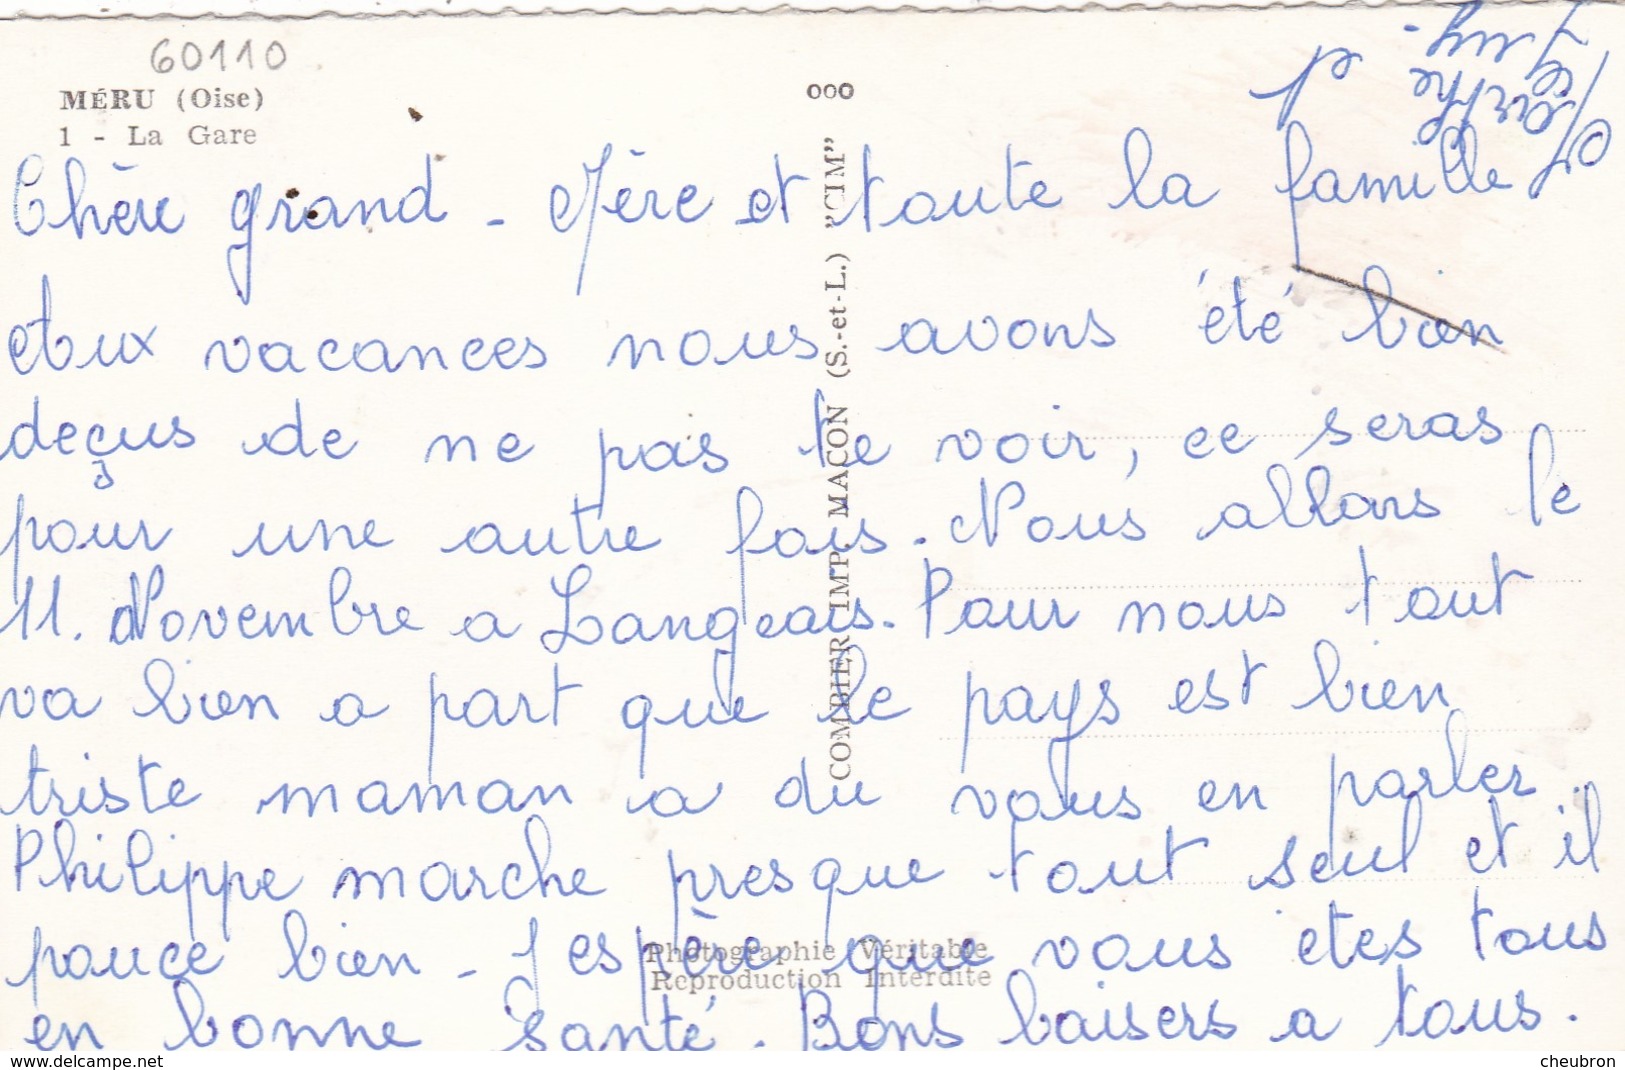 60110
MÉRU (Oise)
1 - La Gare
ooo
Chère grand - Mère et toute la famille
etux vacances nous avons été bien
deçus de ne pas te voir, ce seras
pour une autre fois. Nous allons le
11. Novembre a Langeais. Pour nous tout
va bien a part que le pays est bien
triste maman a du vous en parler
Philippe marche presque tout seul et il
pouce bien - J espère que vous etes tous
en bonne santé. Bons baisers a tous.
COMBIER IMP. MACON (S.-et-L.) "CIM"
Photographie Véritable
Reproduction Interdite
www.delcampe.net
cheubron